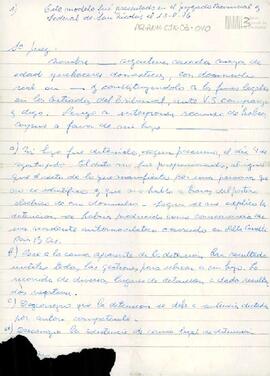 1) Este modelo fué presentado en el juzgado Provincial y
Federal de San Nicolás el 13-8-76
AR-ANM-CJK-06-040
Sr. Juez:
Nombre argentina, casada, mayor de
edad quehaceres domésticos, con domicilio
real en y constituyéndolo a los fines legales
en los estrados del Tribunal, ante V.S. comparezco
y digo: Vengo a interponer recurso de habeas
corpus a favor de mi hijo
a) Mi hijo fue detenido, según presumo, el día 4 de
agosto pdo. El dato me fué proporcionado, al igual
que el resto de lo que manifiesto por una persona que
no se identificó y que me habló a través del portero
eléctrico de mi domicilio. Según se me explicó la
detención se habría producido como consecuencia de
un accidente automovilístico
b) Pese a la causa aparente de la detención, han resultado
inútiles todas las gestiones para ubicar a mi hijo. He
recorrido diversos lugares de detención y dado resultados
negativos.
c) Desconozco que la detención se deba a autoridad dictada
por autoridad competente.
d) Desconozco la existencia de causa legal de detención